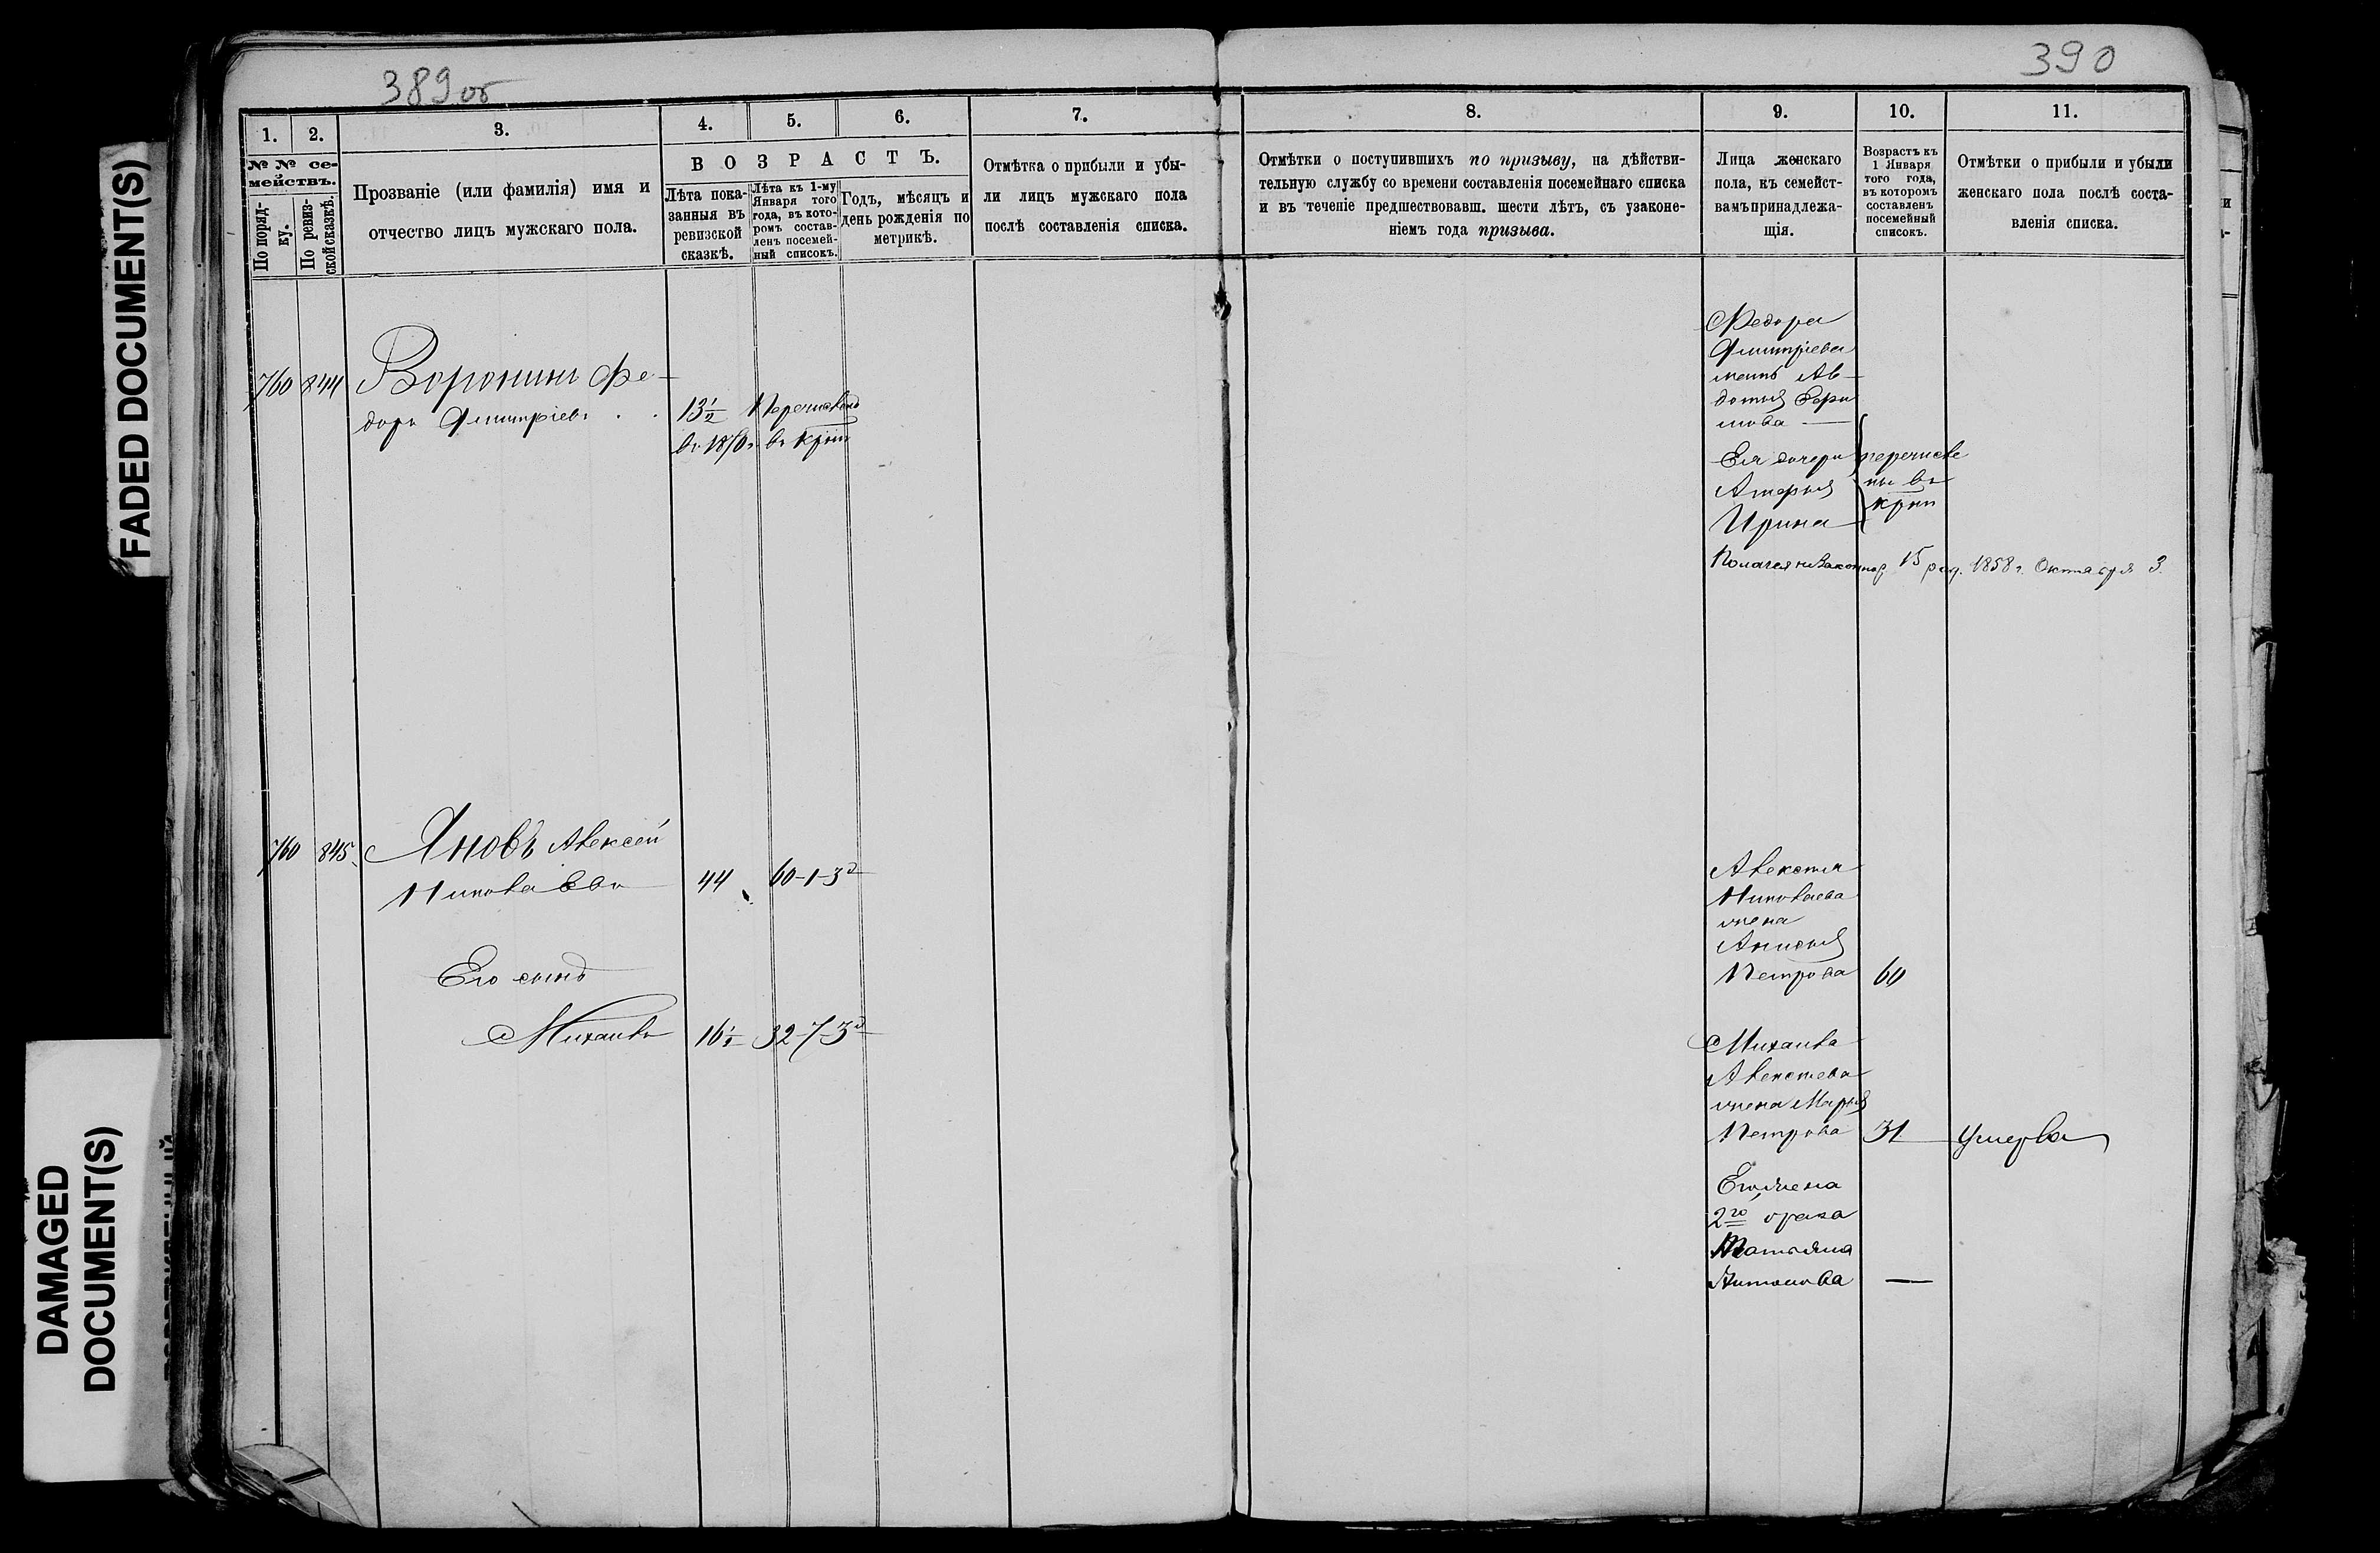 389 об
390
1.
2.
3.
4.
5.
6.
7.
8.
9.
10.
11.
№ № се-
мействъ.
По поряд-
ку.
По ревиз-
ской сказкѣ.
Прозваніе (или фамилія) имя и
отчество лицъ мужскаго пола.
ВОЗРАСТЪ.
Лѣта пока-
занныя въ
ревизской
сказкѣ.
Лѣта къ 1-му
Января того
года, въ кото-
ромъ состав-
ленъ посемей-
ный списокъ.
Годъ, мѣсяцъ и
день рожденія по
метрикѣ.
Отмѣтка о прибыли и убы-
ли лицъ мужскаго пола
послѣ составленія списка.
Отмѣтки о поступившихъ по призыву, на дѣйстви-
тельную службу со времени составленія посемейнаго списка
и въ теченіе предшествовавш. шести лѣтъ, съ узаконе-
ніемъ года призыва.
Лица женскаго
пола, къ семейст-
вамъ принадлежа-
щія.
Возрастъ къ
1 Января
того года,
въ которомъ
составленъ
посемейный
списокъ.
Отмѣтки о прибыли и убыли
женскаго пола послѣ соста-
вленія списка.
760 844 Воронинъ Фе-
доръ Дмитріевъ 13½ Перечисленъ
въ 1870 г. въ крест
Федора
Дмитріева
мать Ав-
дотья
Ея дочери
Ирина
перечисле
ны въ
крест
15 род. 1858 г. Октября 3
760 845 Яновъ Алексей
Николаевъ 44 60-1-3д
Его сынъ
Михаилъ 16½ 32-7-3д
Алексея
Николаева
жена
Анисья
Петрова 60
Михаила
Алексеева
жена Марья
Петрова 31 умерла
Его жена
2го брака
Татьяна
Антонова —
FADED DOCUMENT(S)
DAMAGED
DOCUMENT(S)